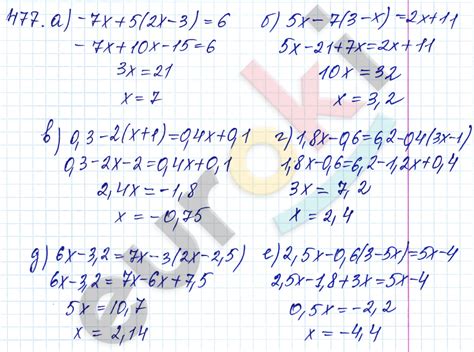 477. а) -7x+5(2x-3)=6
-7x+10x-15=6
3x=21
x=7
б) 5x-7(3-x)=2x+11
5x-21+7x=2x+11
10x=32
x=3,2
в) 0,3-2(x+1)=0,4x+0,1
0,3-2x-2=0,4x+0,1
2,4x=-1,8
x=-0,75
г) 1,8x-0,6=6,2-0,4(3x-1)
1,8x-0,6=6,2-1,2x+0,4
3x=7,2
x=2,4
д) 6x-3,2=7x-3(2x-2,5)
6x-3,2=7x-6x+7,5
5x=10,7
x=2,14
е) 2,5x-0,6(3-5x)=5x-4
2,5x-1,8+3x=5x-4
0,5x=-2,2
x=-4,4
euroki